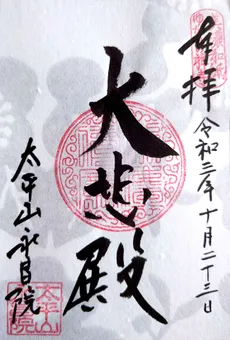 奉拝 令和三年十月二十三日
大悲殿
太平山永昌院